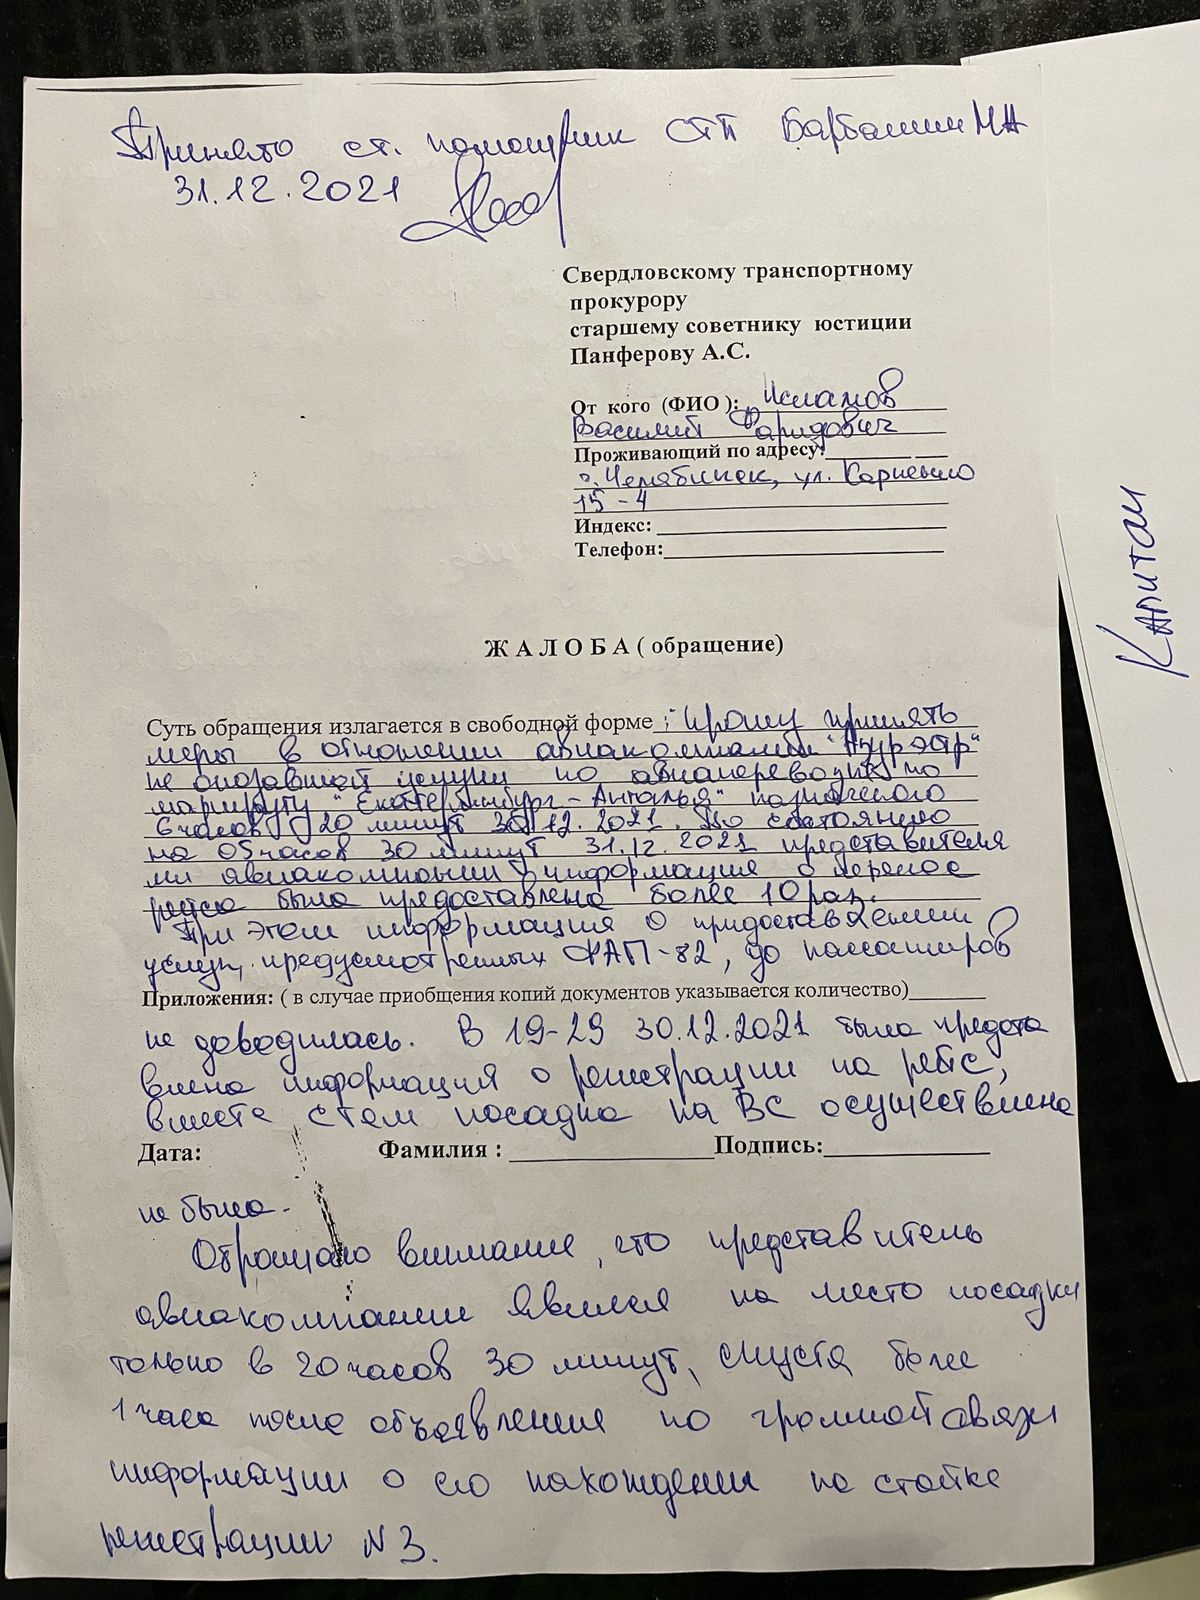 Принято ст. помощник СТП Барбашин МА
31.12.2021
Свердловскому транспортному
прокурору
старшему советнику юстиции
Панферову А.С.
От кого (ФИО): Исламов
Василий Фаридович
Проживающий по адресу:
г. Челябинск, ул.
15-4
Индекс:
Телефон:
ЖАЛОБА ( обращение)
Суть обращения излагается в свободной форме : Прошу принять
меры в отношении авиакомпании "Азур Эйр"
не оказавшей услуги по авиаперевозке по
маршруту "Екатеринбург - Анталья" назначенного
6 часов 20 минут 30.12.2021. По состоянию
на 05 часов 30 минут 31.12.2021 представителя
ми авиакомпании информация о перенос
рейса была предоставлена более 10 раз.
При этом информация о придоставлении
услуг, предусмотренных ФАП-82, до пассажиров
Приложения: ( в случае приобщения копий документов указывается количество)
не доводилась. В 19-29 30.12.2021 была предста
влена информация о регистрации на рейс,
вместе с тем посадка на ВС осуществлена
Дата: Фамилия : Подпись:
не была.
Обращаю внимание, что представитель
авиакомпании явился на место посадки
только в 20 часов 30 минут, спустя более
1 часа после объявления по громкой связи
информации о его нахождении на стойке
регистрации N 3.
Капитан